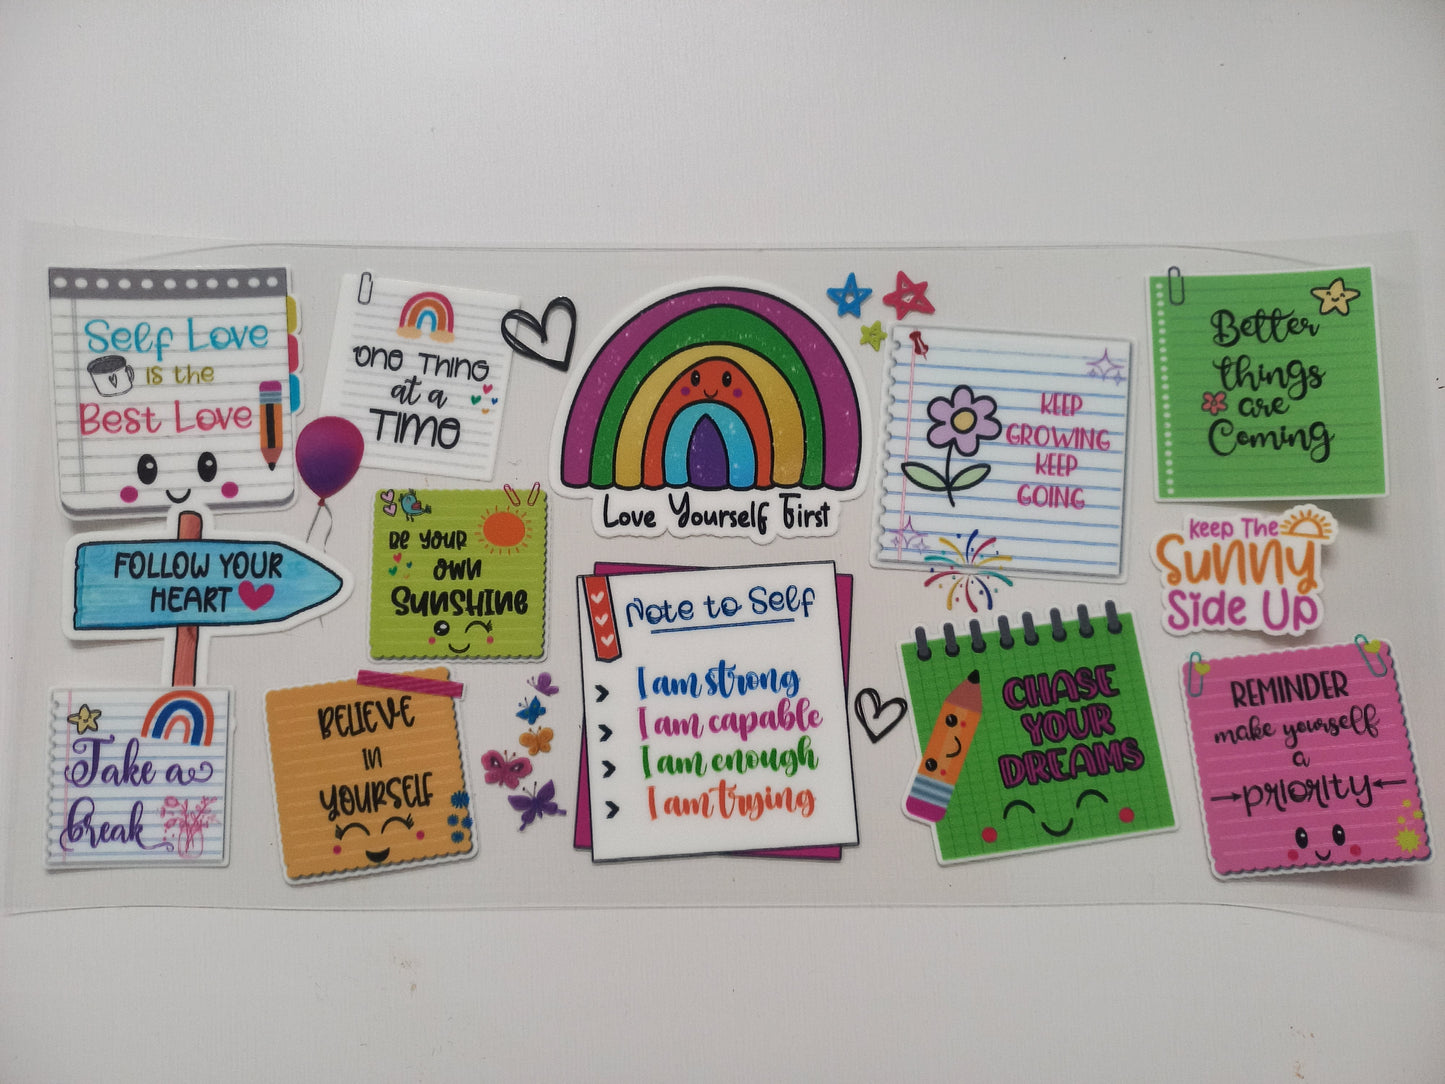 Self Love
is the
Best Love
ONE THING
at a
TIME
Love Yourself First
KEEP
GROWING
KEEP
GOING
Better
things
are
Coming
FOLLOW YOUR
HEART
BE YOUR
OWN
SUNSHINE
Note to Self
I am strong
I am capable
I am enough
I am trying
Keep The
Sunny
Side Up
Take a
break
BELIEVE
IN
YOURSELF
CHASE
YOUR
DREAMS
REMINDER
make yourself
a
priority